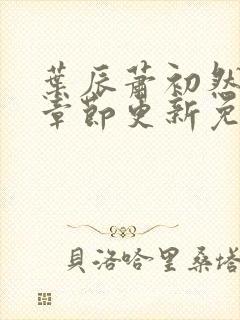 葉辰蕭初然
章節更新免
貝洛哈里桑塔